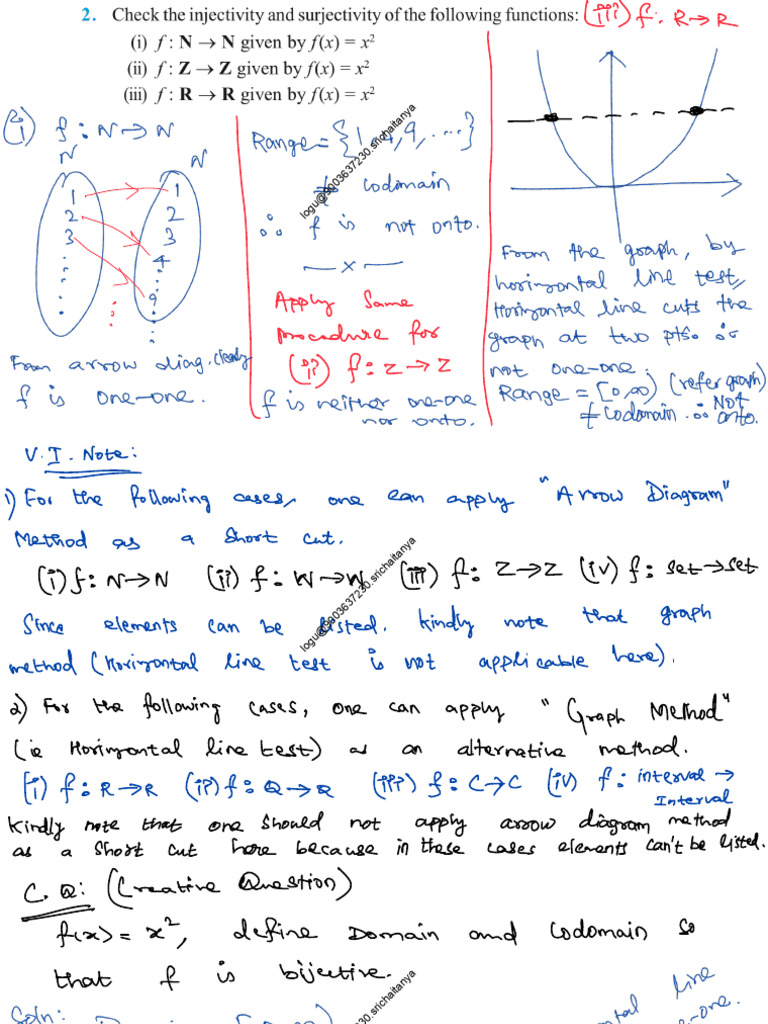 2. Check the injectivity and surjectivity of the following functions:
(i) f : N → N given by f(x) = x²
(ii) f : Z → Z given by f(x) = x²
(iii) f : R → R given by f(x) = x²
(i) f : N → N
N N
1 1
2 2
3 3
4
9
From arrow diag. clearly
f is one-one.
Range = {1, 4, 9, ....}
≠ codomain
∴ f is not onto.
— x —
Apply Same
procedure for
(ii) f : Z → Z
f is neither one-one
nor onto.
(iii) f : R → R
From the graph, by
horizontal line test,
Horizontal line cuts the
graph at two pts. ∴
not one-one.
Range = [0, ∞) (refer graph)
≠ codomain ∴ Not
onto.
logu@9903637230.srichaitanya
V. I. Note:
1) For the following cases, one can apply "Arrow Diagram"
Method as a short cut.
(i) f : N → N (ii) f : W → W (iii) f : Z → Z (iv) f : set → set
Since elements can be listed. kindly note that graph
method (Horizontal line test is not applicable here).
logu@9903637230.srichaitanya
2) For the following cases, one can apply "Graph Method"
(ie Horizontal line test) as an alternative method.
(i) f : R → R (ii) f : Q → Q (iii) f : C → C (iv) f : interval →
Interval
Kindly note that one should not apply arrow diagram method
as a short cut here because in these cases elements can't be listed.
C. Q: (Creative Question)
f(x) = x², define Domain and Codomain so
that f is bijective.
srichaitanya
Soln:
line